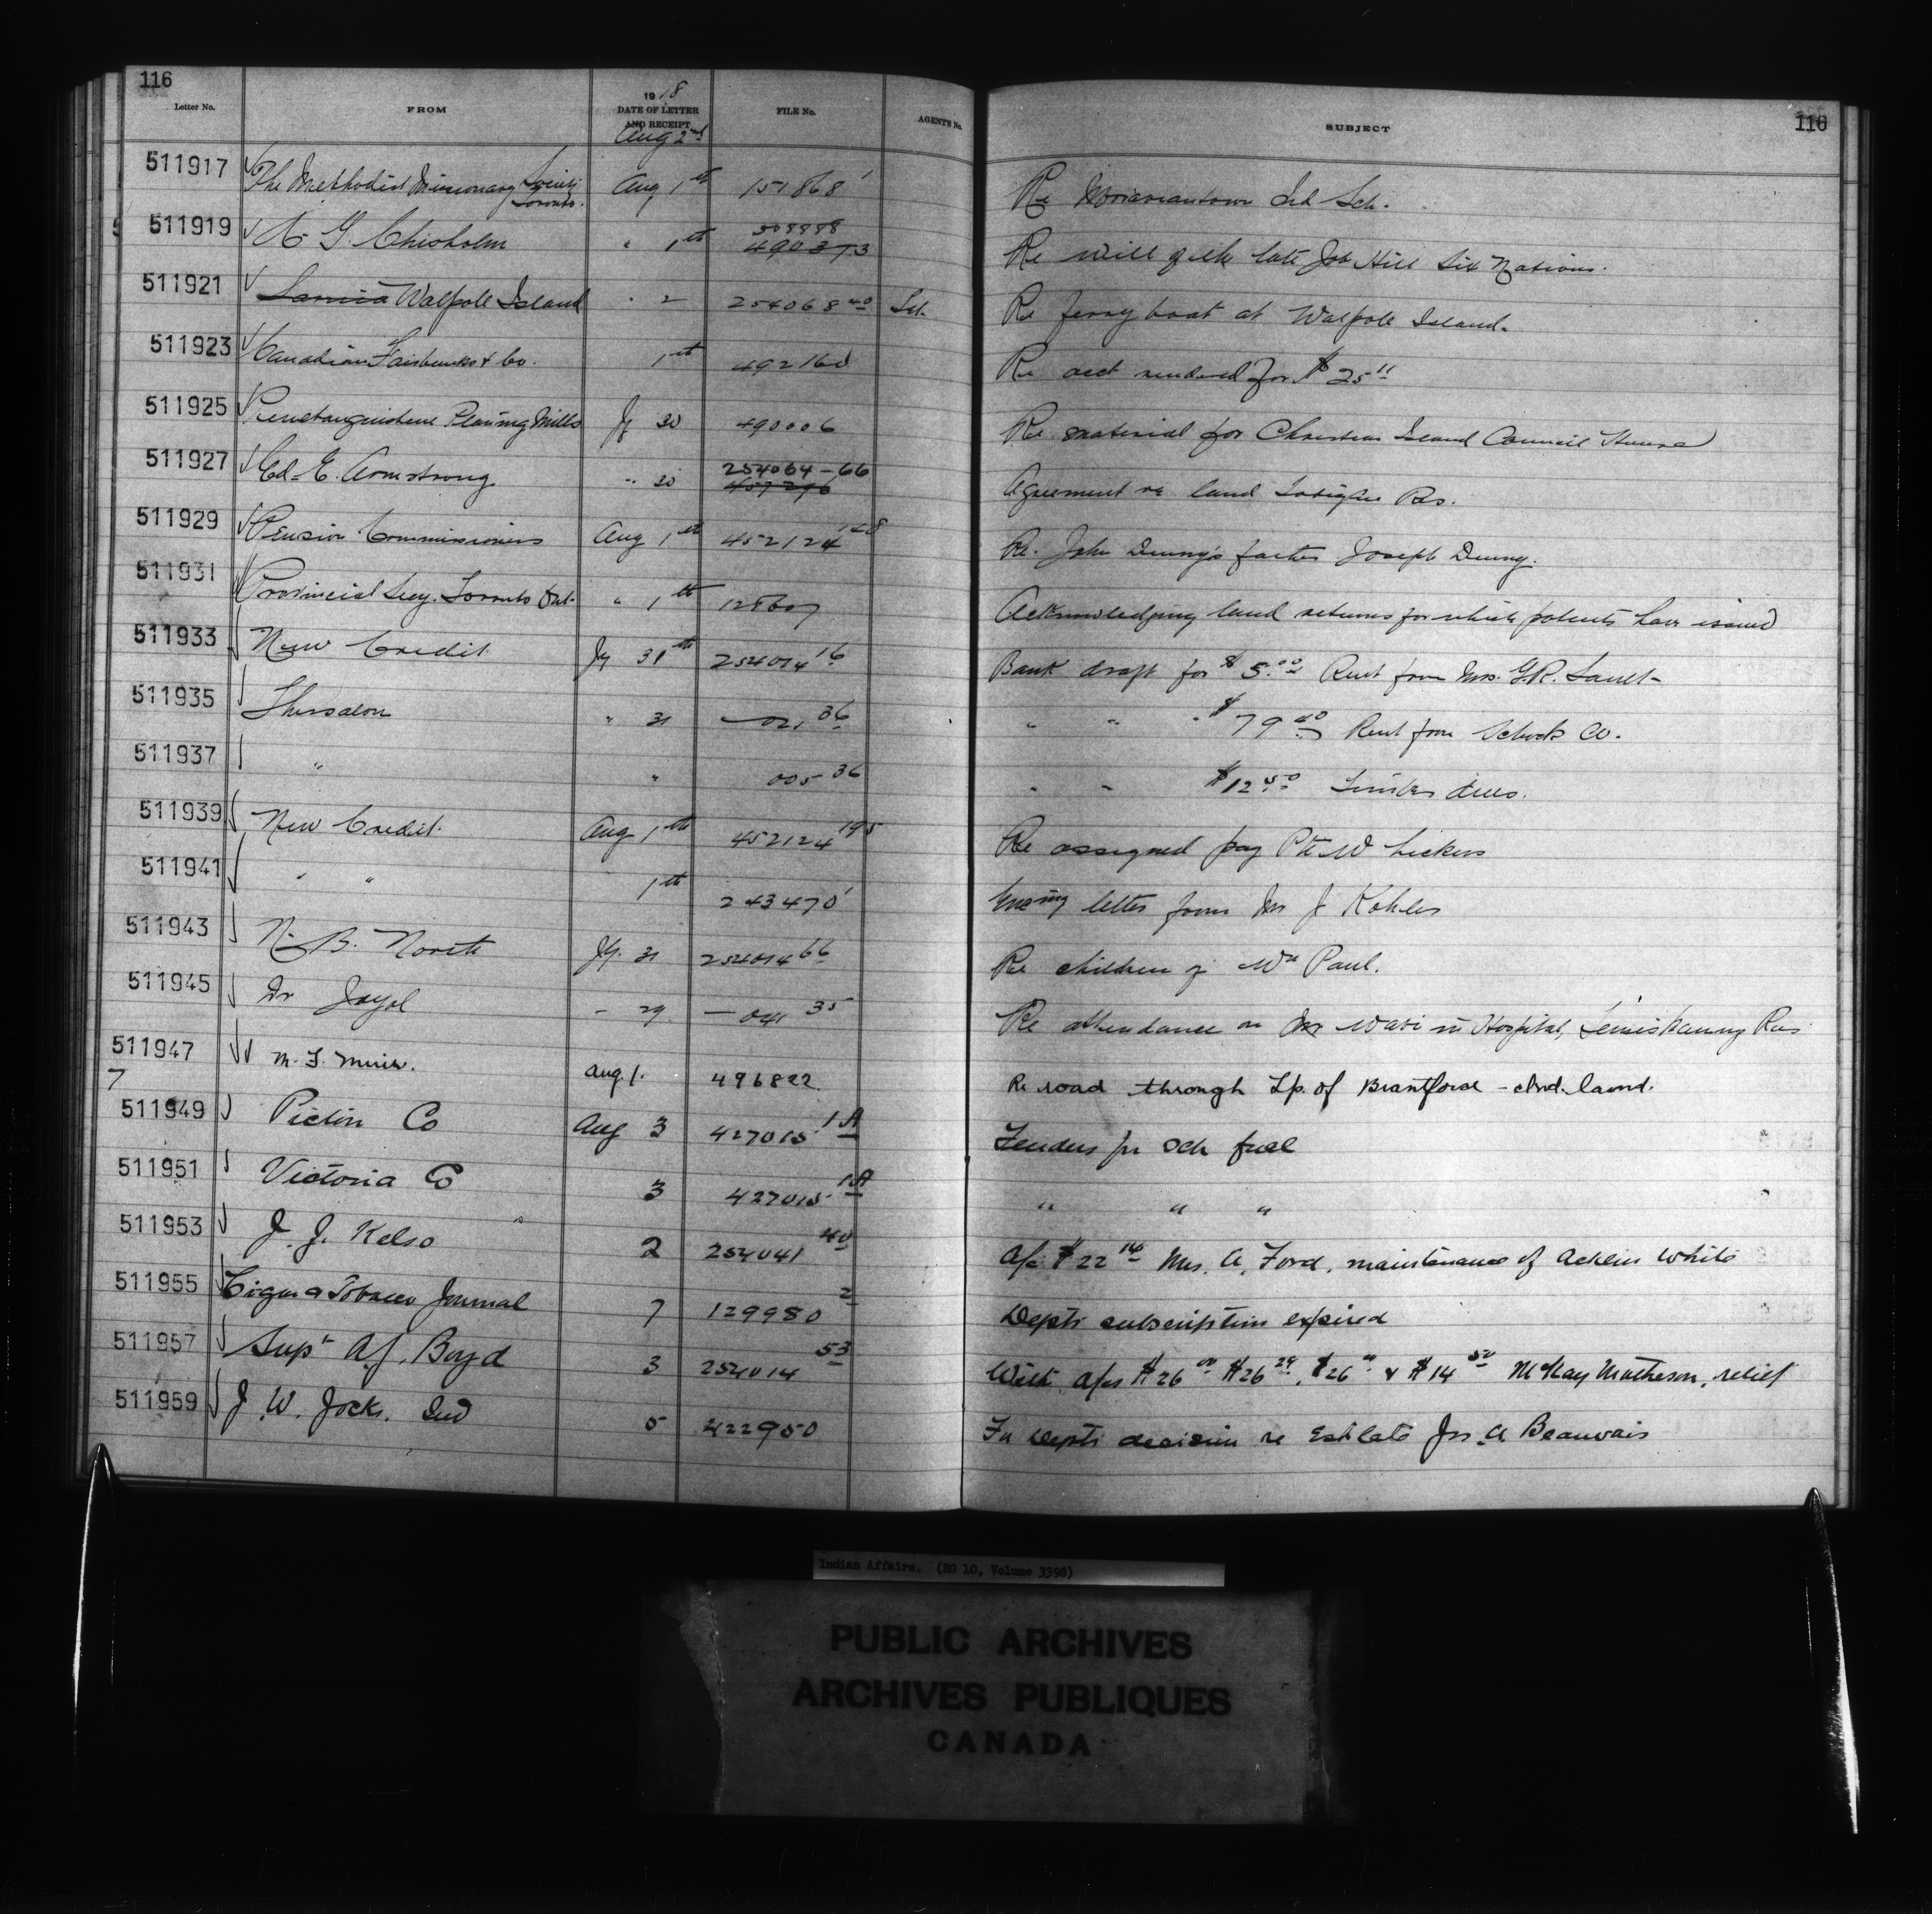 116
116
Letter No. FROM 1918 DATE OF LETTER AND RECEIPT FILE No. AGENTS No. SUBJECT
Aug 2nd
511917 The Methodist Missionary Society Toronto. Aug 1st 151868 1 Re Moraviantown Ind Sch.
511919 A. G. Chisholm " 1st 490373 Re will of the late Job Hill Six Nations.
511921 Sarnia Walpole Island " 2 254068 40 Re ferry boat at Walpole Island.
511923 Canadian Fairbanks & Co. 1st 492160 Re acct rendered for $25 11
511925 Penetanguishene Planing Mills Jy 30 490006 Re material for Christian Island Council House
511927 Ed. E. Armstrong " 30 254064-66 Agreement re land Tobique Res.
511929 Pension Commissioners Aug 1st 452124 148 Re. John Denny's father Joseph Denny.
511931 Provincial Secy. Toronto Ont. " 1st 128607 Acknowledging land returns for which patents have issued
511933 New Credit Jy 31st 254014 16 Bank draft for $5.00 Rent from Mrs. G.R. Sault
511935 Thessalon " 31 — 021 36 " " " $79 40 Rent from Co.
511937 " " 005 36 " " $12 50 Timber dues.
511939 New Credit. Aug 1st 452124 195 Re assigned pay Pte W Lickers
511941 " " 1st 243470 1 letter from Mr J Kohler
511943 N. B. North Jy. 31 254014 66 Re children of Wm Paul.
511945 Dr - 29 — 041 35 Re attendance on Mr Wabi in Hospital, Res.
511947 M. F. Muir. Aug 1. 496822 Re road through Tp. of Brantford - Ind. land.
7
511949 Pictou Co Aug 3 427015 1A Tenders for Sch fuel
511951 Victoria Co 3 427015 1A " " "
511953 J. J. Kelso 2 254041 40 A/c $22 14 Mrs. A. Ford, maintenance of White
511955 Cigar & Tobacco Journal 7 129980 2 Depts subscription expired
511957 Supt A J. Boyd 3 254014 53 With a/cs $26 00 $26 29, $26 & $14 50 McKay Matheson, relief
511959 J. W. Jocks. Ind 5 422950 Fr Depts decision re Est late Jos. A Beauvais
Indian Affairs. (RG 10, Volume 3398)
PUBLIC ARCHIVES
ARCHIVES PUBLIQUES
CANADA